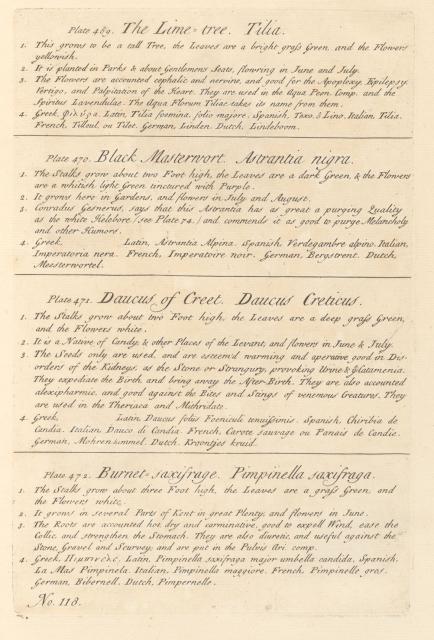 Plate 469. The Lime-tree. Tilia.
1. This grows to be a tall Tree, the Leaves are a bright graſs Green, and the Flowers
yellowish.
2. It is planted in Parks & about Gentlemens Seats, flowring in June and July.
3. The Flowers are accounted cephalic and nervine, and good for the Apoplexy, Epilepsy,
Vertigo, and Palpitation of the Heart. They are used in the Aqua Peon. Comp. and the
Spiritus Lavendulae. The Aqua Florum Tiliae takes its name from them.
4. Greek, Φιλύρα. Latin, Tilia foemina, folio majore. Spanish, Taxo. & Lino. Italian, Tilia.
French, Tilleul, ou Tilet. German, Linden. Dutch, Lindeboom.
Plate 470. Black Masterwort. Astrantia nigra.
1. The Stalks grow about two Foot high, the Leaves are a dark Green, & the Flowers
are a whitish light Green tinctured with Purple.
2. It grows here in Gardens, and flowers in July and August.
3. Conradus Gesnerus, says that this Astrantia has as great a purging Quality
as the white Helebore (see Plate 74.) and commends it as good to purge Melancholy
and other Humors.
4. Greek, Latin, Astrantia Alpina. Spanish, Verdegambre alpino. Italian,
Imperatoria nera. French, Imperatoire noir. German, Bergstrent. Dutch,
Meesterwortel.
Plate 471. Daucus of Creet. Daucus Creticus.
1. The Stalks grow about two Foot high, the Leaves are a deep graſs Green,
and the Flowers white.
2. It is a Native of Candy, & other Places of the Levant, and flowers in June & July.
3. The Seeds only are used, and are esteem'd warming and aperative, good in Dis-
orders of the Kidneys, as the Stone or Strangury, provoking Urine &
They expediate the Birth, and bring away the After-Birth. They are also accounted
alexipharmic, and good against the Bites and Stings of venemous Creatures. They
are used in the Theriaca and Mithridate.
4. Greek, Latin Daucus foliis Foeniculi tenuiſsimis. Spanish, Chiribia de
Candia. Italian, Dauco di Candia. French, Carote sauvage ou Panais de Candie.
German, Mohren kimmel. Dutch, Kroontjes kruid.
Plate 472. Burnet-saxifrage. Pimpinella saxifraga.
1. The Stalks grow about three Foot high, the Leaves are a graſs Green, and
the Flowers white.
2. It grows in several Parts of Kent in great Plenty, and flowers in June.
3. The Roots are accounted hot, dry and carminative, good to expell Wind, ease the
Collic, and strengthen the Stomach. They are also diuretic, and useful against the
Stone, Gravel and Scurvey; and are put in the Pulvis Ari. comp.
4. Greek, Latin, Pimpinella saxifraga major umbella candida. Spanish,
La Mas Pimpinela. Italian, Pimpinella maggiore. French, Pimpinelle gros.
German, Bibernell. Dutch, Pimpernelle.
No. 118.